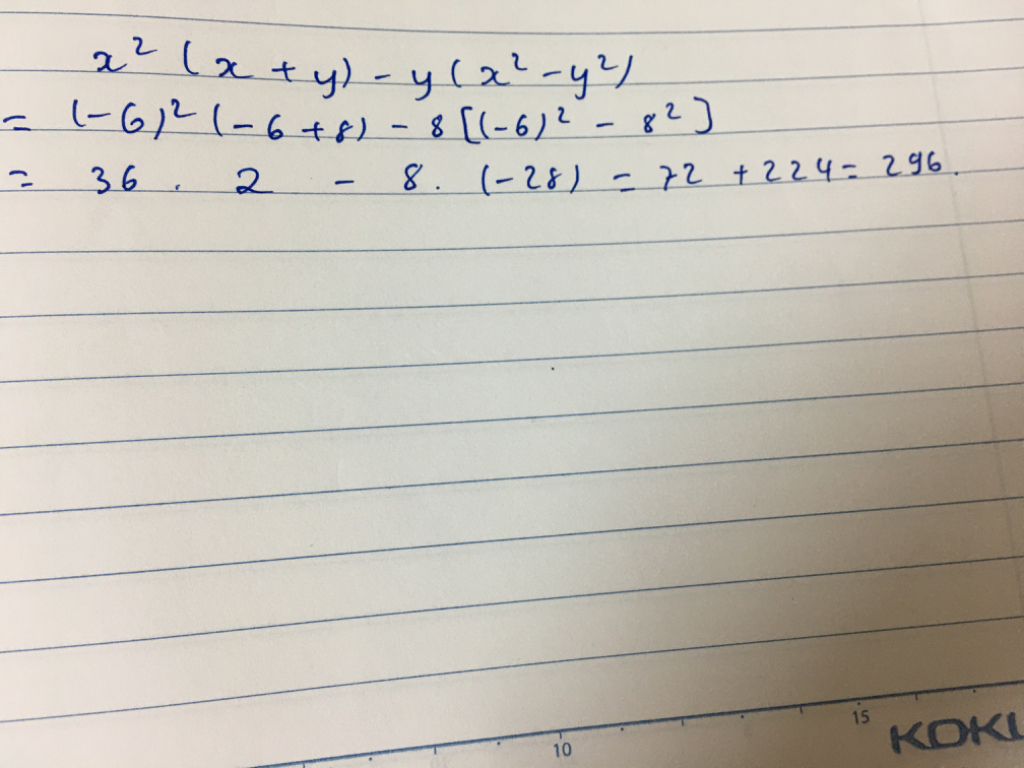 x² (x + y) - y (x² - y²)
= (-6)² (-6 + 8) - 8 [(-6)² - 8²]
= 36 . 2 - 8. (-28) = 72 + 224 = 296.
15
10